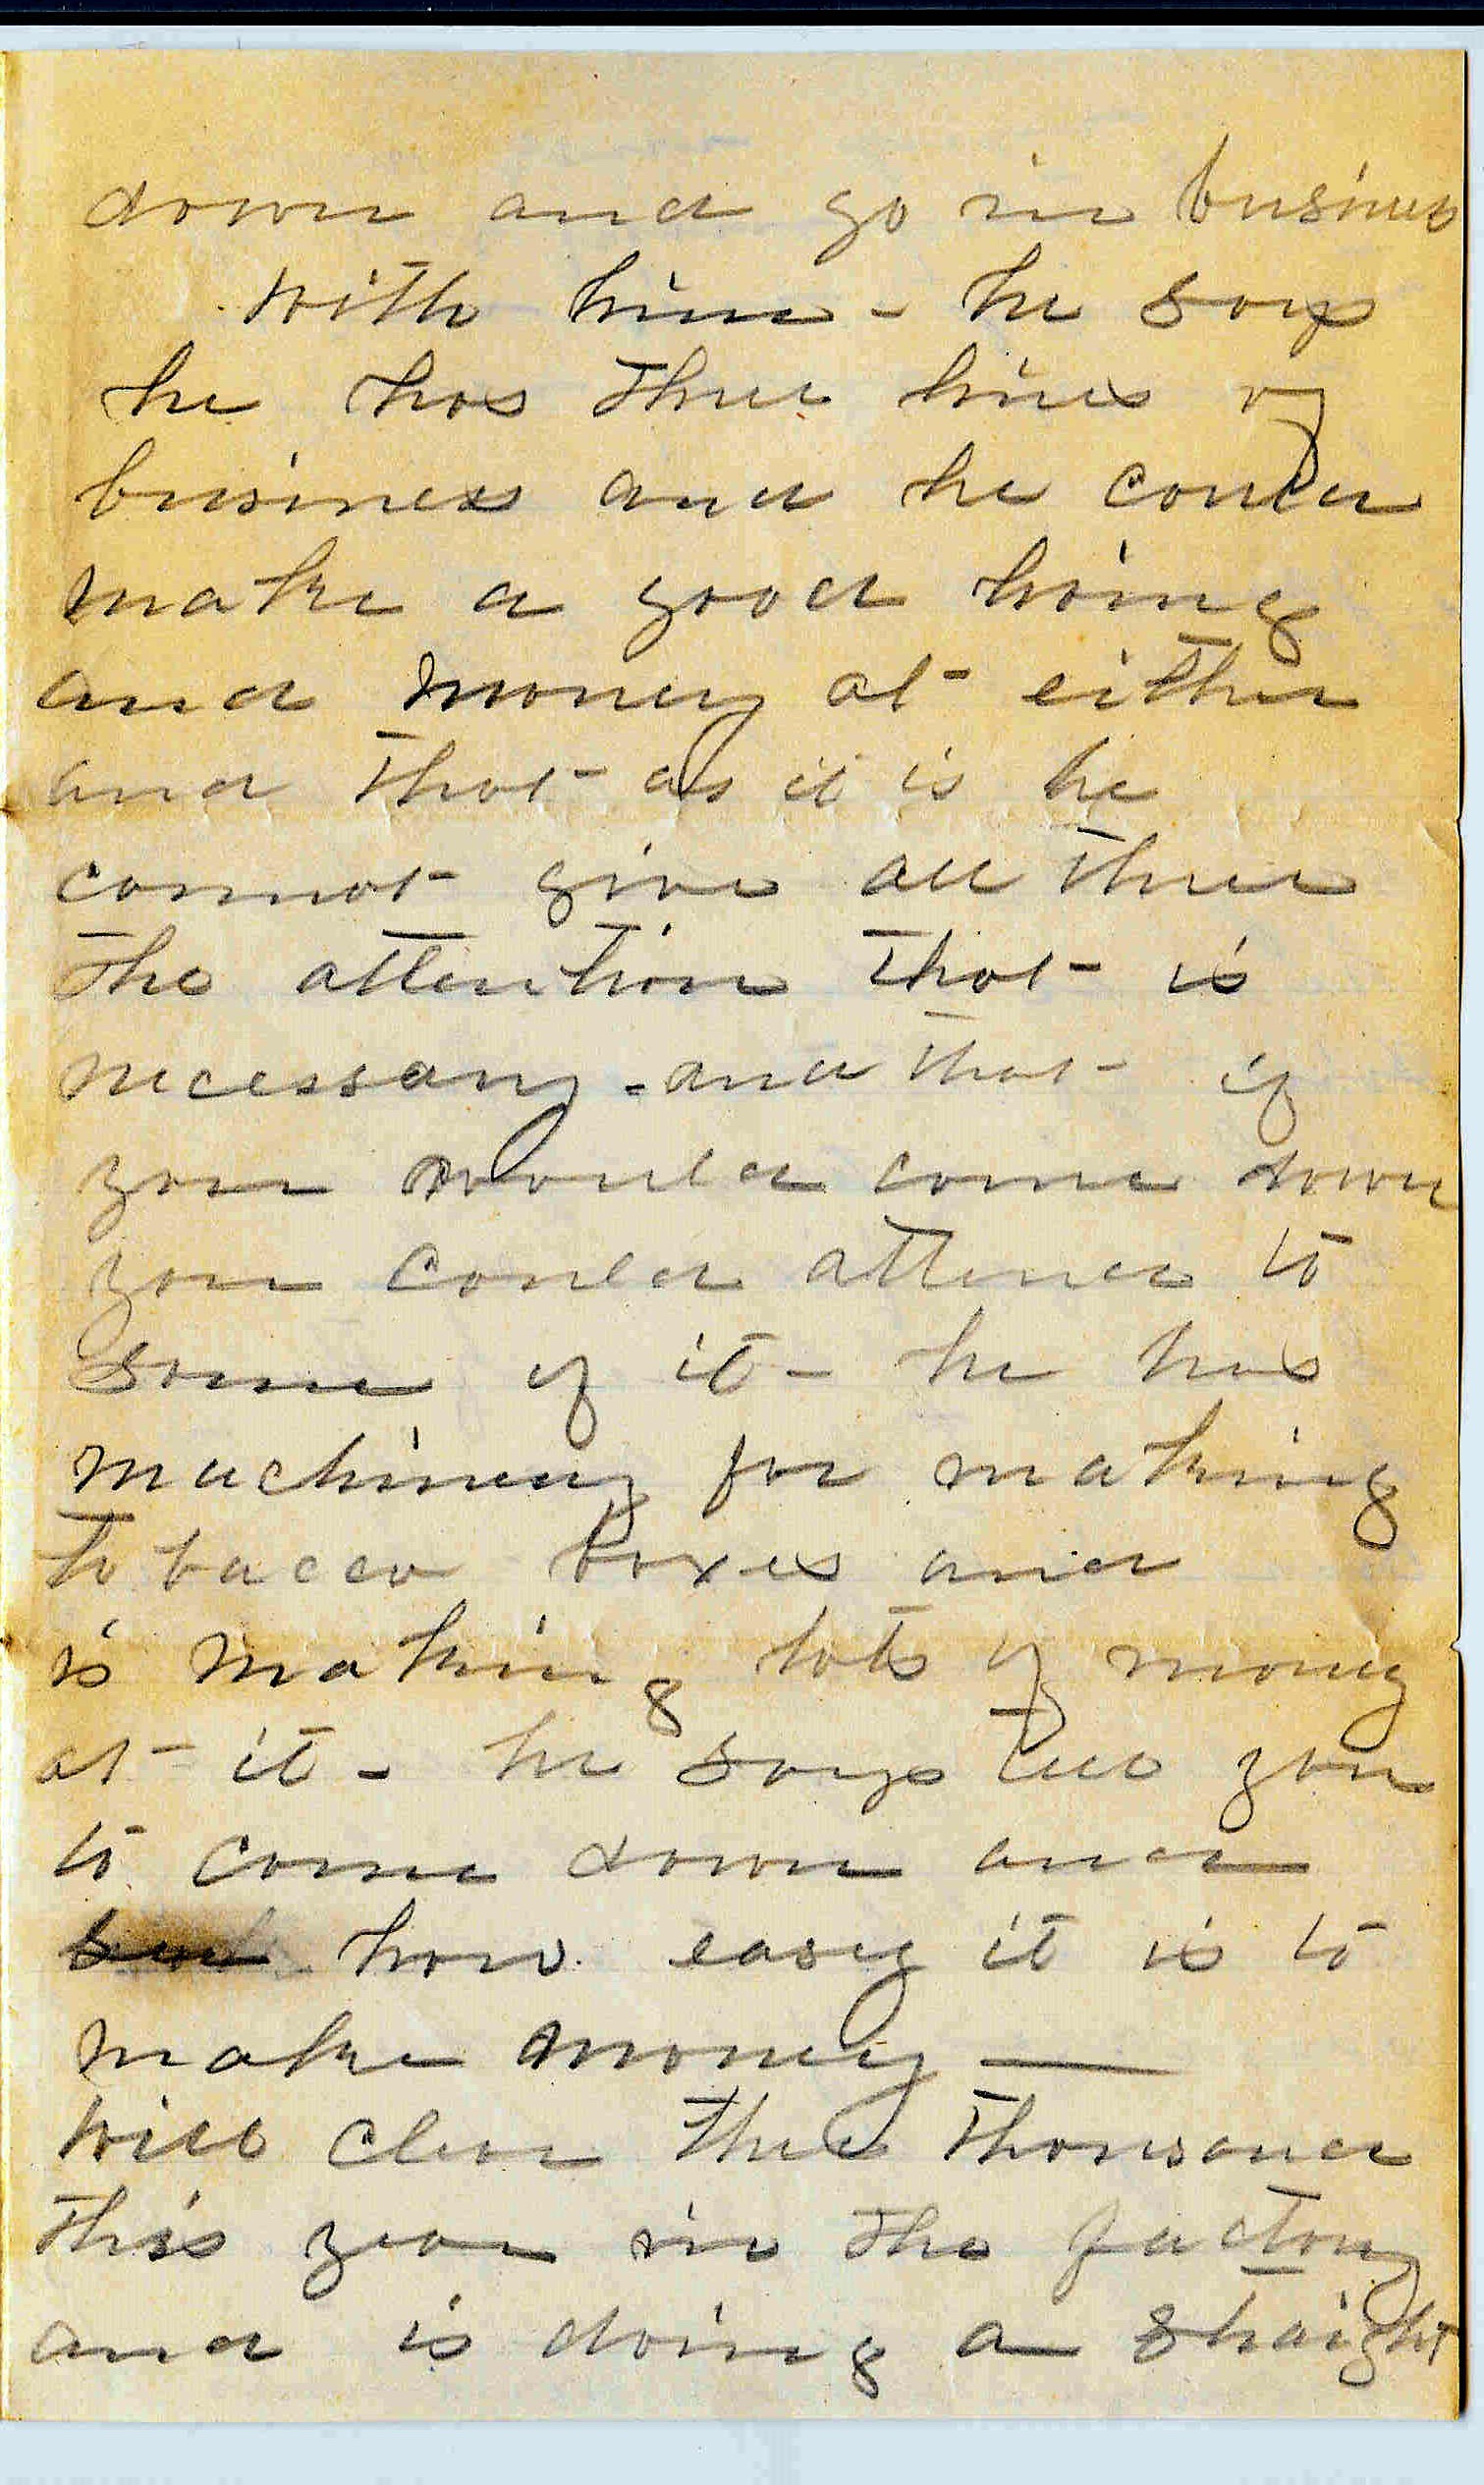 down and go in business
with him - he says
he has three lines of
business and he could
make a good living
and money at either
and that as it is he
cannot give all three
the attention that is
necessary - and that if
you would come down
you could attend to
some of it - he has
machinery for making
tobacco boxes and
is making lots of money
at it - he says tell you
to come down and
how easy it is to
make money —
will clear three thousand
this year in the factory
and is doing a straight